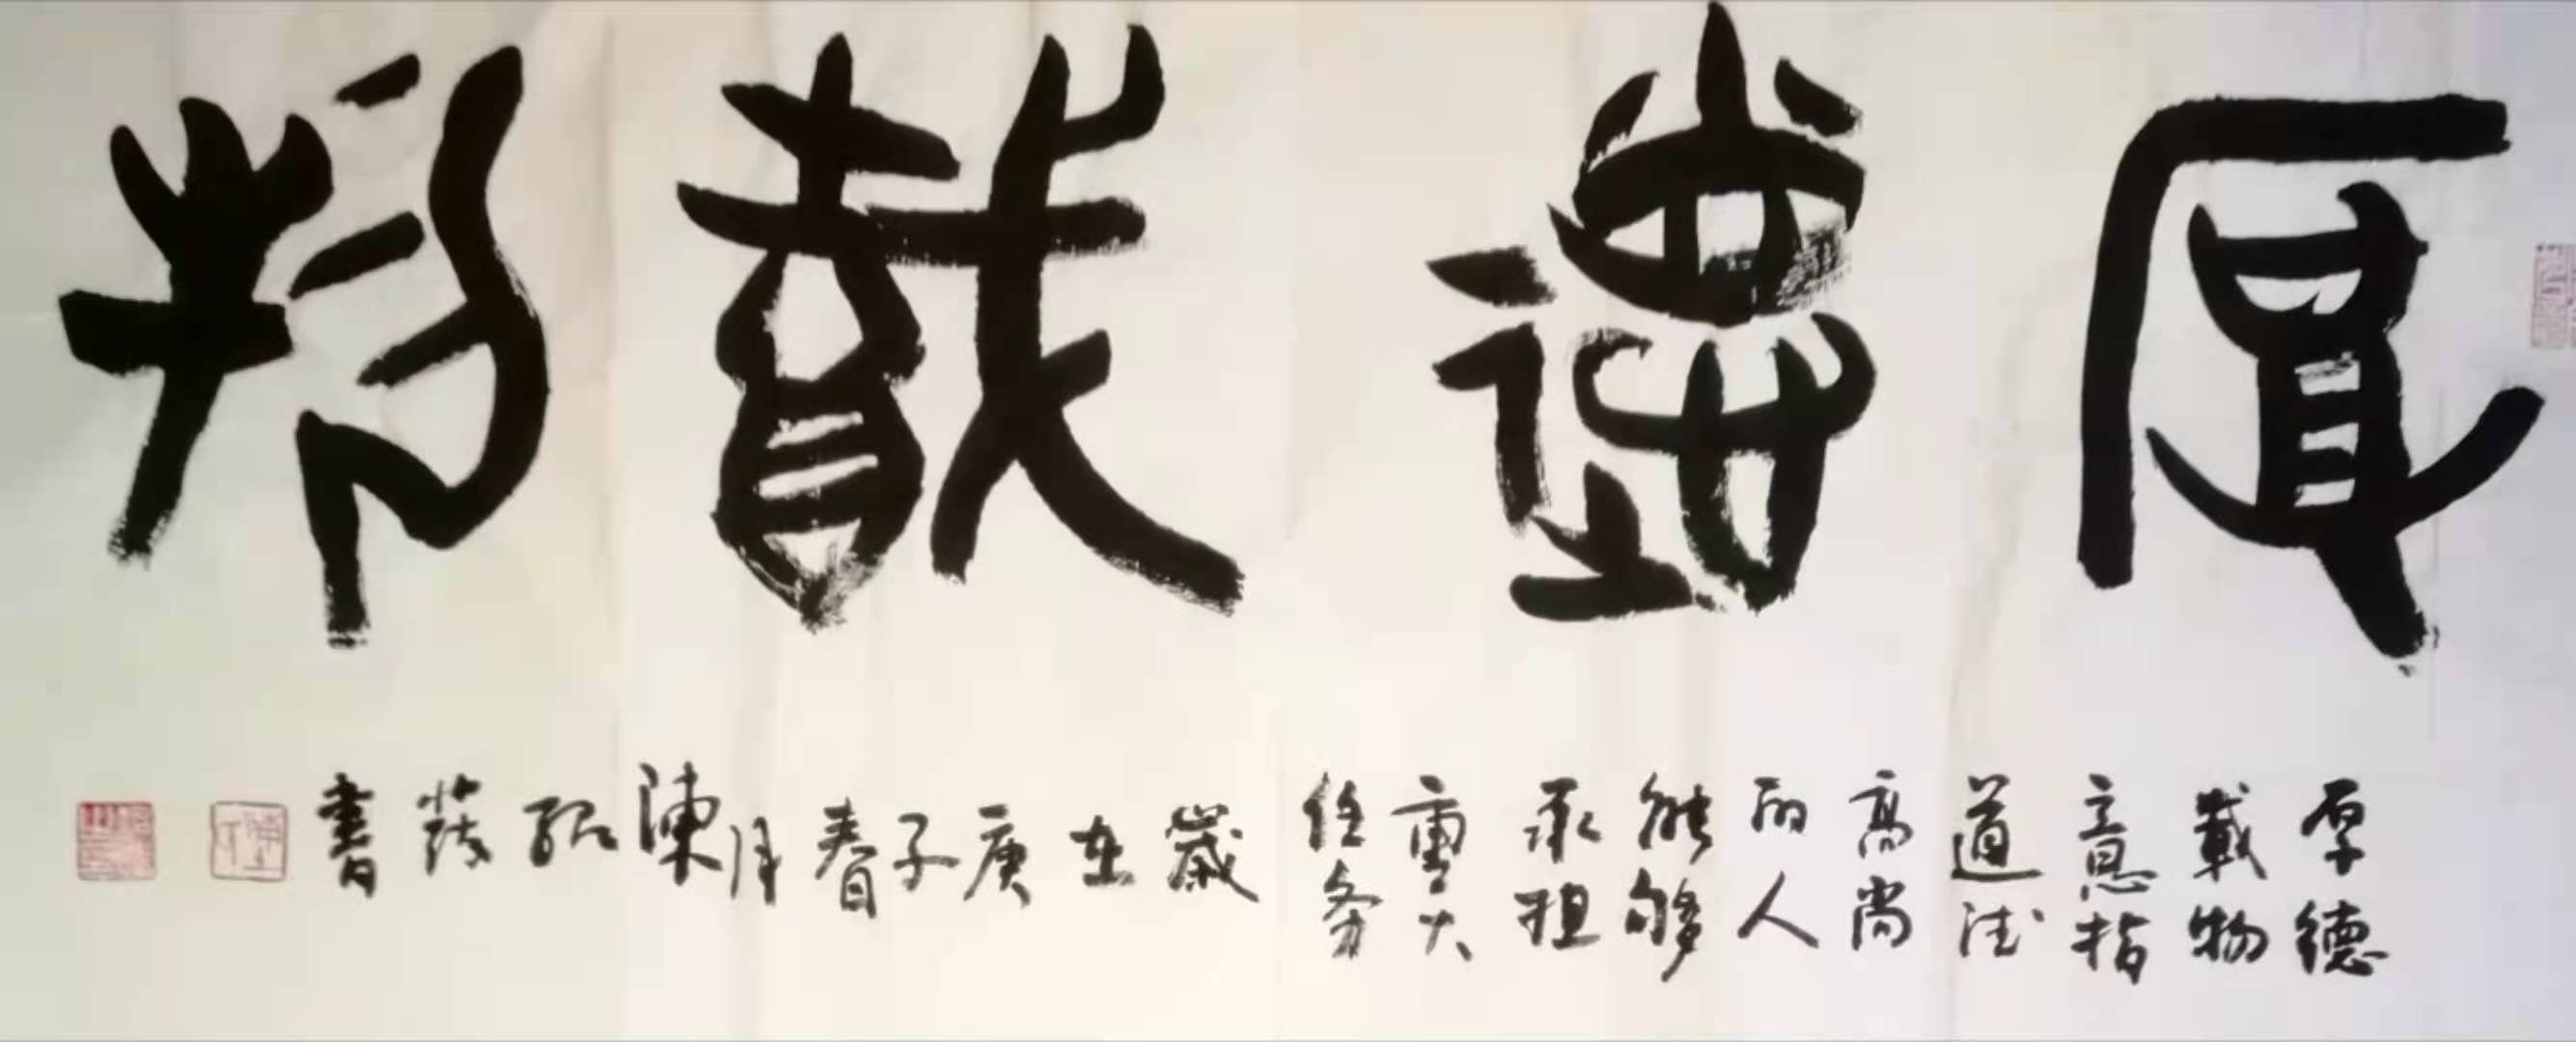 厚德載物
厚德
載物
意指
道德
高尚
的人
能够
承担
重大
任务
歲在庚子春月陳書